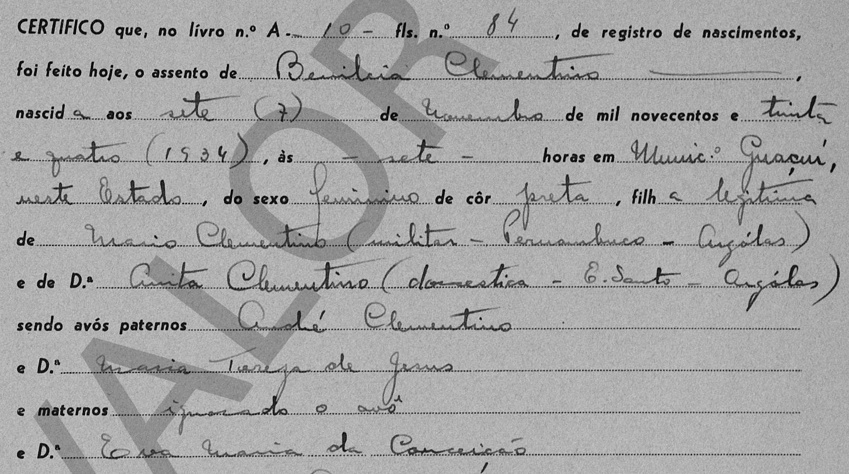 CERTIFICO que, no livro n.º A - 10 - fls. n.º 84, de registro de nascimentos,
foi feito hoje, o assento de Benilcia Clementino,
nascida aos sete (7) de Novembro de mil novecentos e trinta
e quatro (1934), às - sete - horas em Munic.º Guaçuí,
neste Estado, do sexo feminino de côr preta, filha legitima
de Mario Clementino (militar - Pernambuco - Argólas)
e de D.ª Anita Clementino (domestica - E. Santo - Argólas)
sendo avós paternos André Clementino
e D.ª Maria Tereza de Jesus
e maternos ignorado o avô
e D.ª Eva Maria da Conceição
VALOR